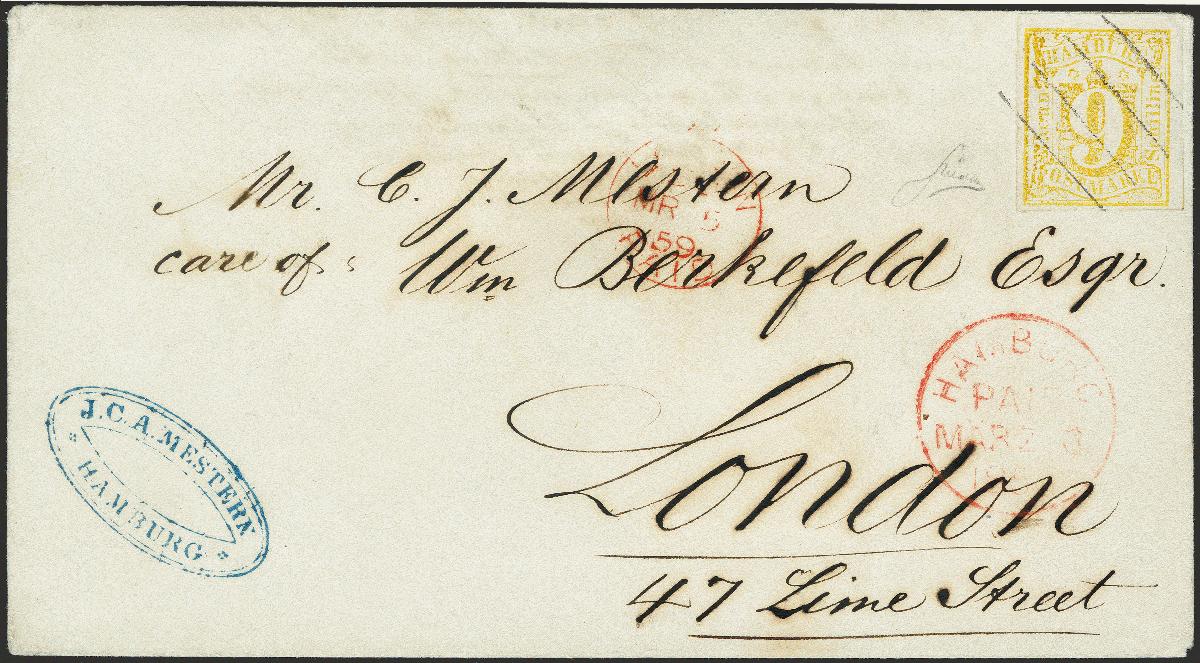 HAMBURG
9
POSTMARKE
Mr. C. J. Mestern
MR 5
59
care of: Wm Berkefeld Esqr.
HAMBURG
PAID
MARZ 3
J.C.A. MESTERN
HAMBURG
London
47 Lime Street